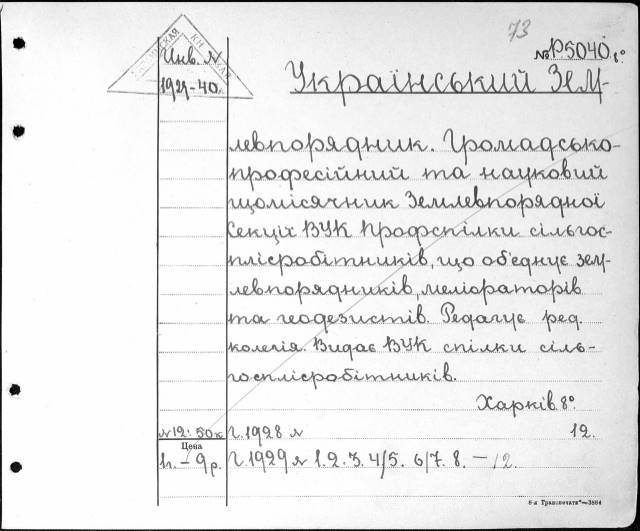 73
№ P5040 8°
Инв. №
1929-40.
Український Зем-
левпорядник. Громадсько-
професійний та науковий
щомісячник Землевпорядної
Секціх ВУК Профспілки сільгос-
плісробітників, що об'єднує зем-
левпорядників, меліораторів
та геодезистів. Редагує ред.
колегія. Видає ВУК спілки сіль-
госплісробітників.
Харків 8°.
№12: 50к г. 1928 № 12.
Цена
1г. – 9р. г. 1929 № 1. 2. 3. 4/5. 6/7. 8. – 12.
8-я Транспечати"—3884